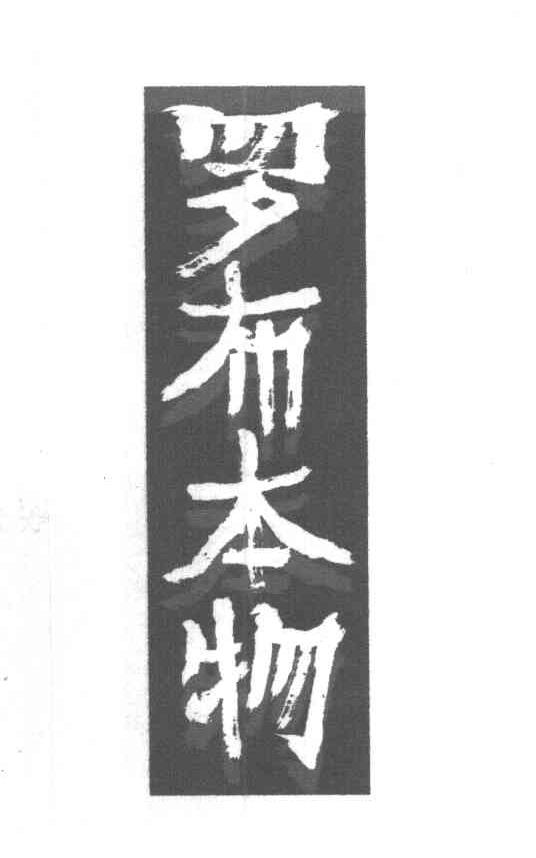 罗布本物